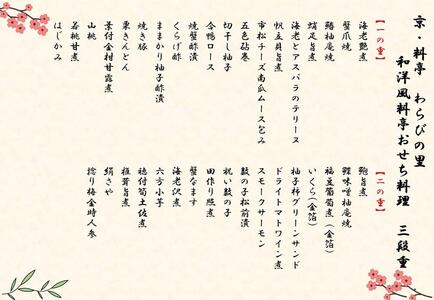 京・料亭 わらびの里
和洋風料亭おせち料理 三段重
【一の重】
海老艶煮
蟹爪焼
鰆柚庵焼
蛸足旨煮
海老とアスパラのテリーヌ
帆立貝旨煮
市松チーズ南瓜ムース包み
五色砧巻
切干し柚子
合鴨ロース
焼蟹酢漬
くらげ酢
ままかり柚子酢漬
焼き豚
栗きんとん
芽付金柑甘露煮
山桃
若桃甘煮
はじかみ
【二の重】
鮑旨煮
鰹味噌柚庵焼
福豆葡萄煮（金箔）
いくら（金箔）
柚子柿グリーンサンド
ドライトマトワイン煮
スモークサーモン
数の子松前漬
祝い数の子
田作り照煮
蟹なます
海老沢煮
六方小芋
穂付筍土佐煮
椎茸旨煮
絹さや
捻り梅金時人参